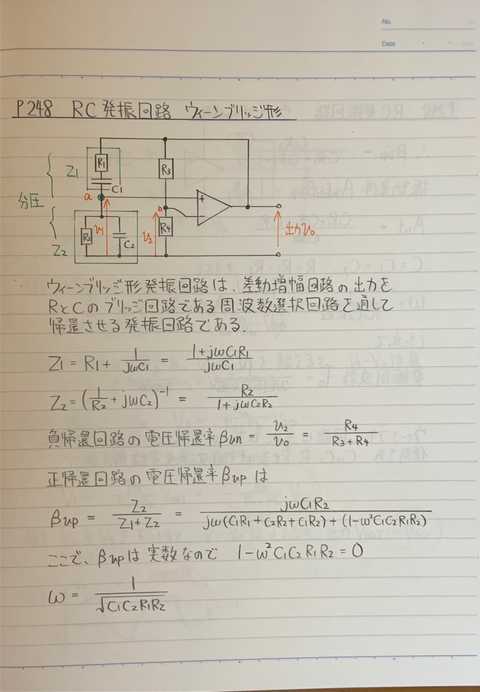 No.
Date
P248 RC発振回路 ウィーンブリッジ形
R1
C1
Z1
分圧
Z2
a
v1
R2
C2
R3
R4
v2
+
−
出力v0
ウィーンブリッジ形発振回路は、差動増幅回路の出力を
RとCのブリッジ回路である周波数選択回路を通して
帰還させる発振回路である.
Z1 = R1 + 1/jωC1 = (1+jωC1R1)/jωC1
Z2 = (1/R2 + jωC2)^-1 = R2/(1+jωC2R2)
負帰還回路の電圧帰還率βvn = v2/v0 = R4/(R3+R4)
正帰還回路の電圧帰還率βvpは
βvp = Z2/(Z1+Z2) = jωC1R2/(jω(C1R1+C2R2+C1R2)+(1-ω²C1C2R1R2))
ここで、βvpは実数なので 1-ω²C1C2R1R2=0
ω = 1/√C1C2R1R2